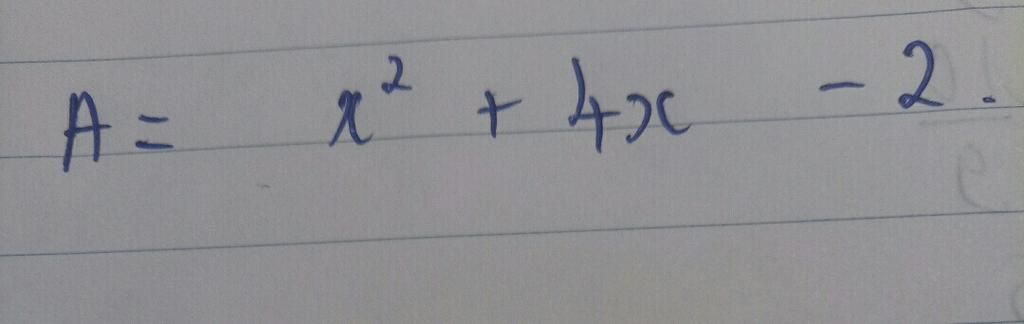 A = x² + 4x - 2.